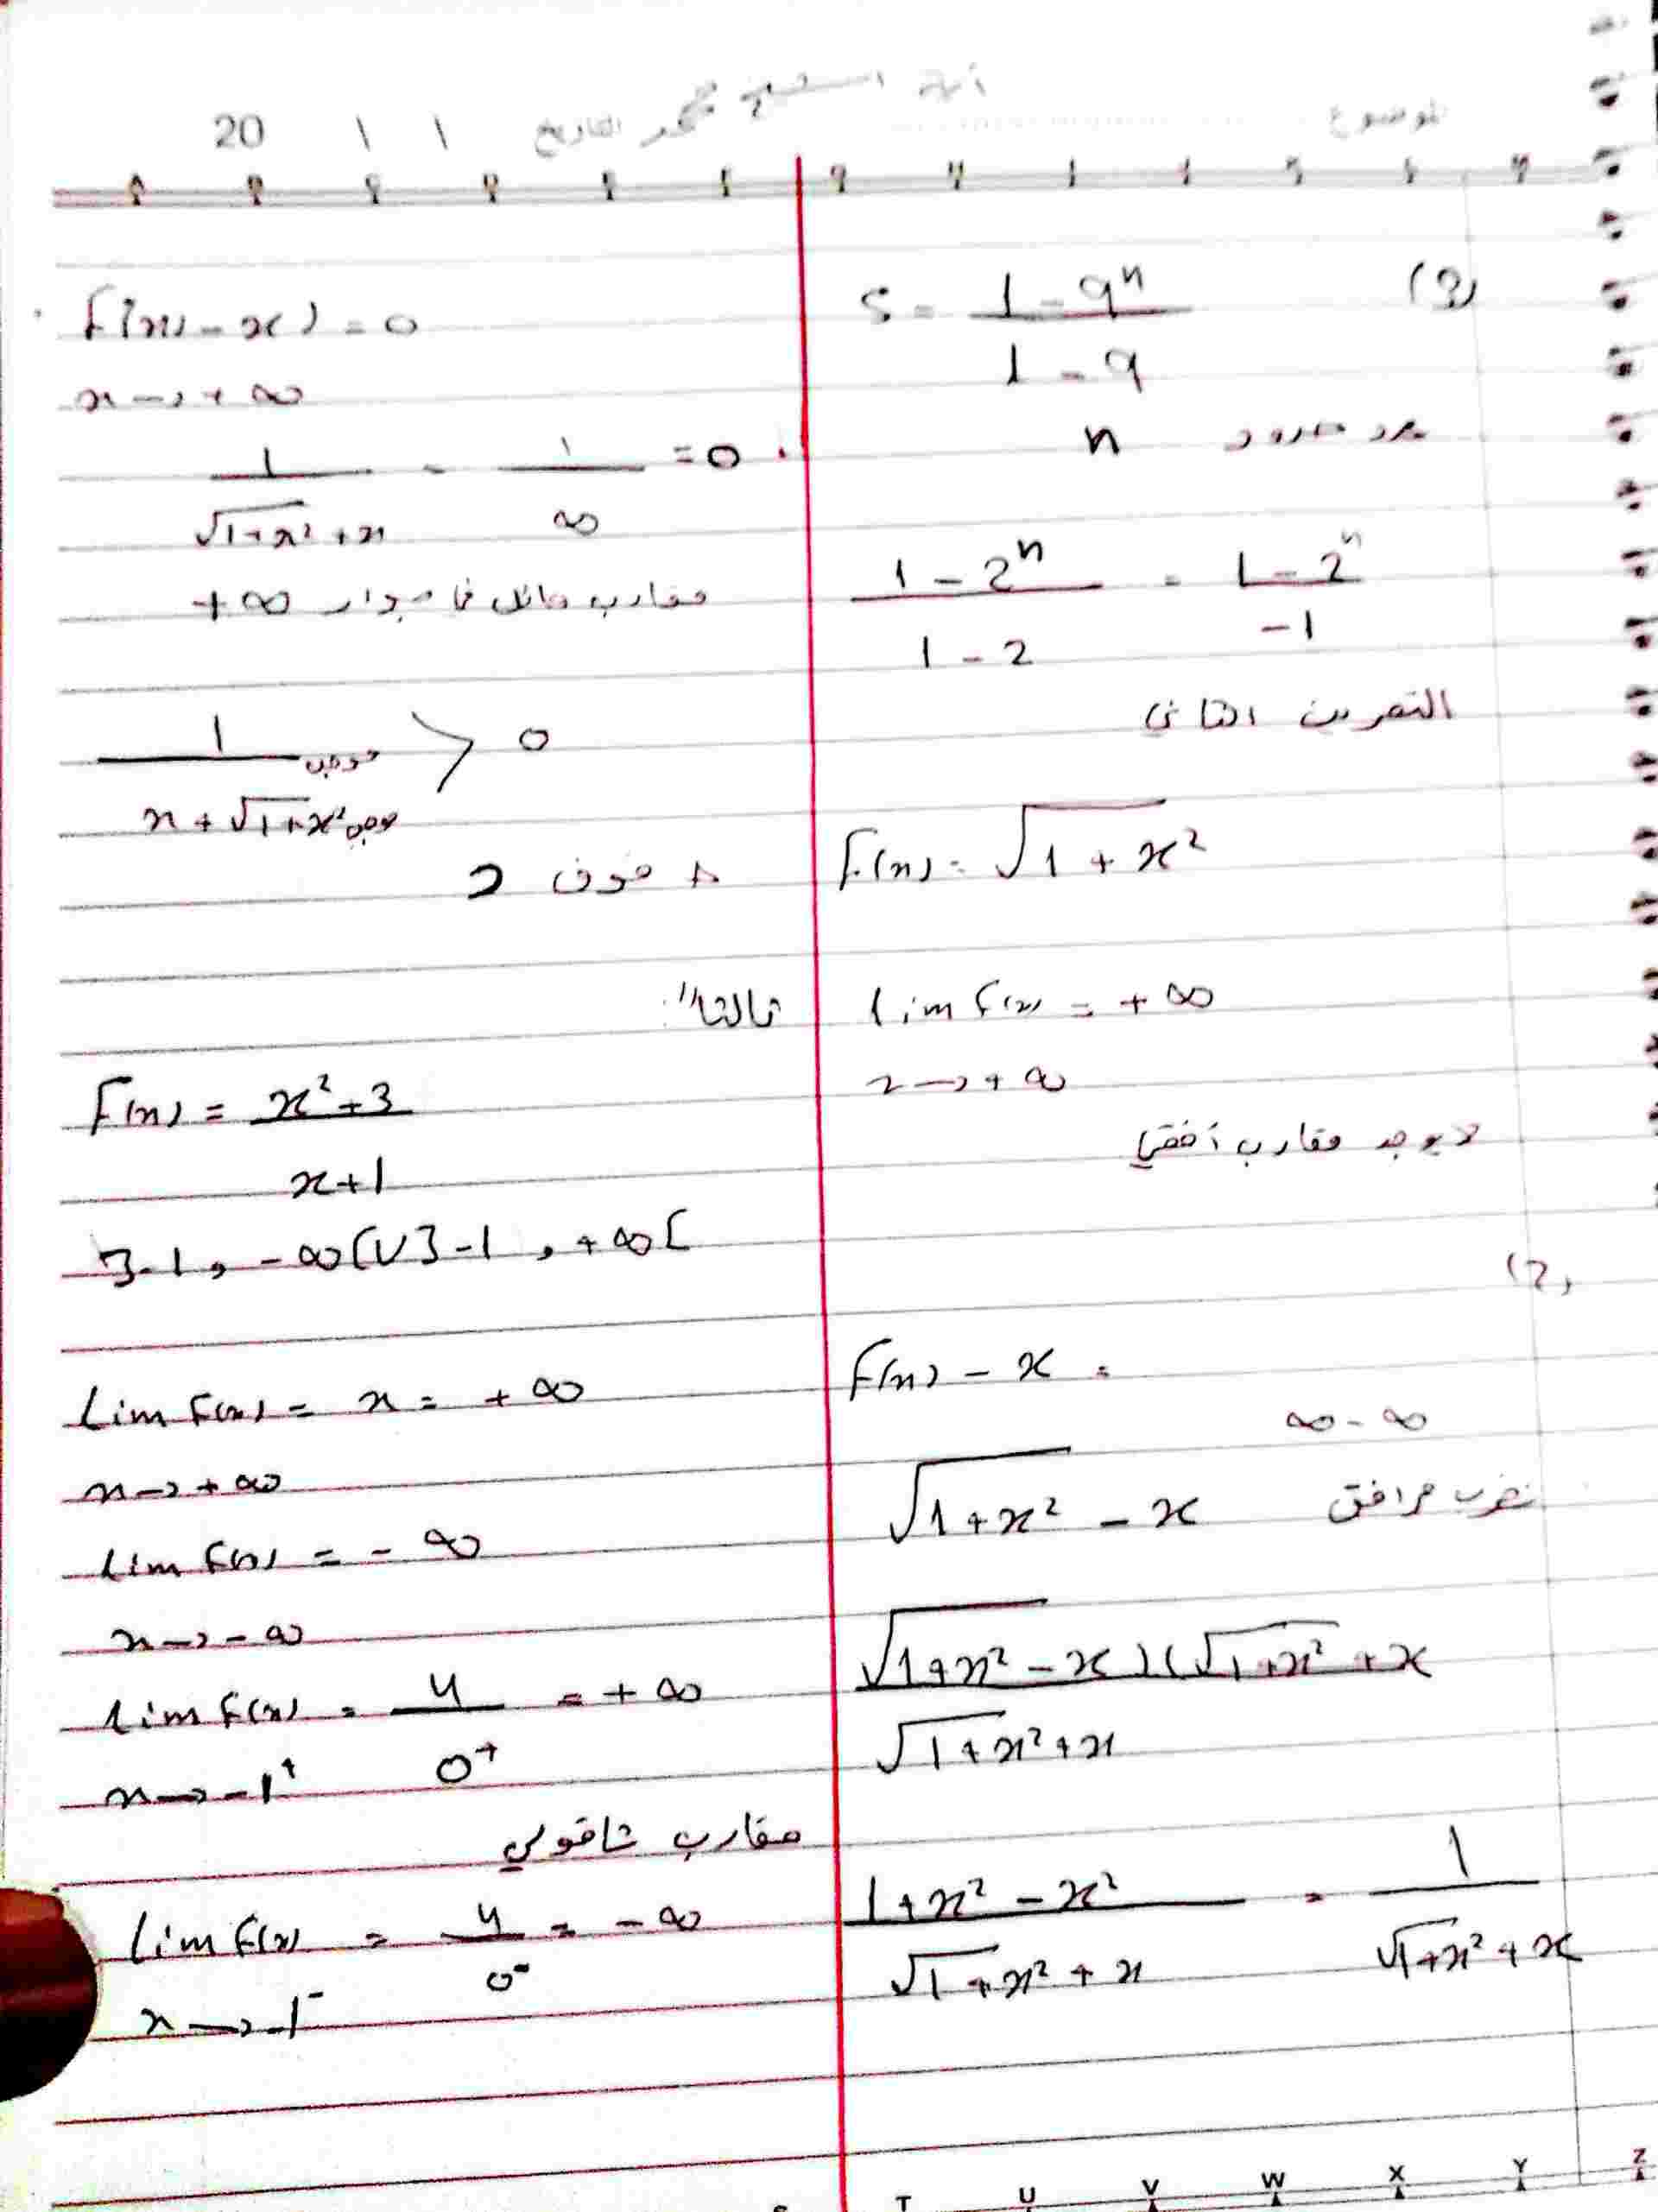 الموضوع
آية الشيخ محمد التاريخ / / 20
(3)
S = \frac{1-q^n}{1-q}
عدد حدود n
\frac{1-2^n}{1-2} = \frac{1-2^n}{-1}
التمرين الثاني
F(x) = \sqrt{1+x^2}
lim f(x) = +∞
x → +∞
لا يوجد مقارب أفقي
(2)
F(x) - x =
∞ - ∞
\sqrt{1+x^2} - x نضرب مرافق
\frac{\sqrt{1+x^2} - x)(\sqrt{1+x^2} + x}{\sqrt{1+x^2}+x}
\frac{1+x^2-x^2}{\sqrt{1+x^2}+x} = \frac{1}{\sqrt{1+x^2}+x}
F(x) - x) = 0
x → +∞
\frac{1}{\sqrt{1+x^2}+x} = \frac{1}{∞} = 0
مقارب مائل في جوار +∞
\frac{1}{x+\sqrt{1+x^2}} موجب موجب > 0
فوق Δ C
ثالثاً:
F(x) = \frac{x^2+3}{x+1}
]-1, -∞[ U ]-1, +∞[
lim F(x) = x = +∞
x → +∞
lim F(x) = -∞
x → -∞
lim f(x) = \frac{4}{0^+} = +∞
x → -1^+
مقارب شاقولي
lim f(x) = \frac{4}{0^-} = -∞
x → -1^-
T U V W X Y Z